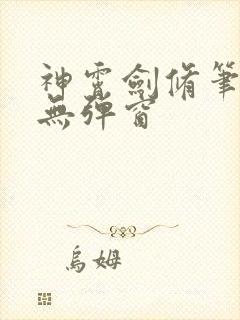 神霄劍脩筆
無彈窗
烏姆